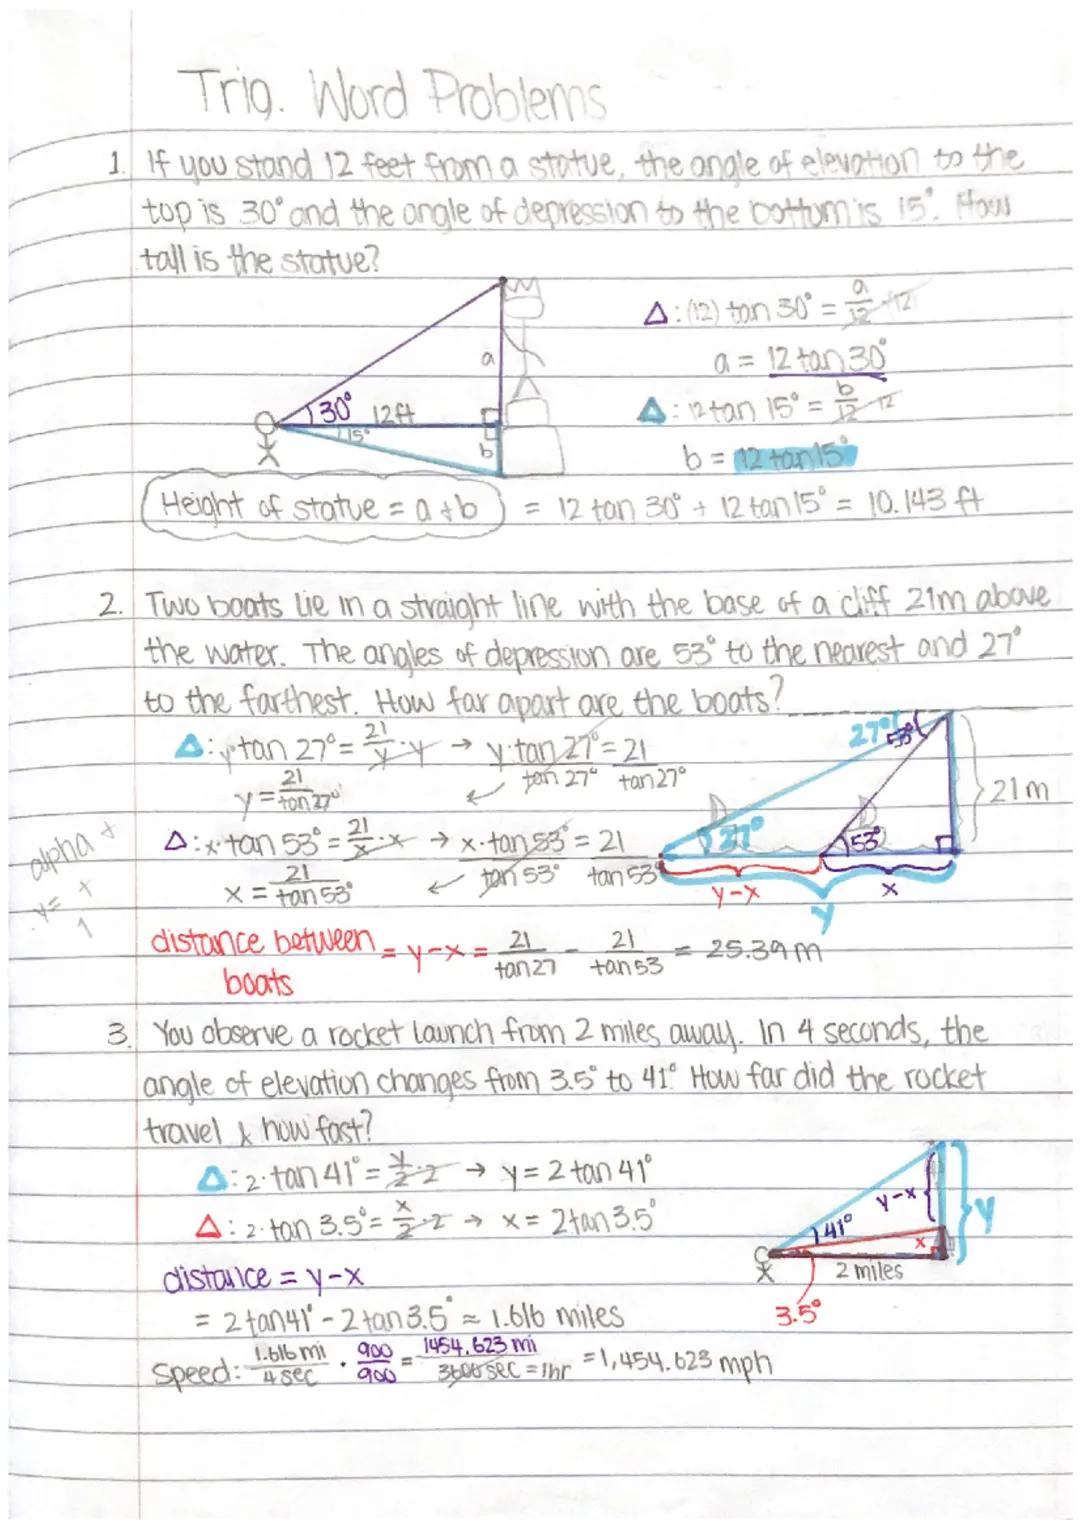 Trig. Word Problems
1. If you stand 12 feet from a statue, the angle of elevation to the
top is 30° and the angle of depression to the bottom is 15°. How
tall is the statue?
Δ: (12) tan 30° = a/12 · 12
a = 12 tan 30°
Δ: 12 tan 15° = b/12 · 12
b = 12 tan 15°
a
30° 12ft
15°
b
Height of statue = a + b = 12 tan 30° + 12 tan 15° = 10.143 ft
2. Two boats lie in a straight line with the base of a cliff 21m above
the water. The angles of depression are 53° to the nearest and 27°
to the farthest. How far apart are the boats?
Δ: y·tan 27° = 21/y · y → y·tan 27°/tan 27° = 21/tan 27°
y = 21/tan 27°
Δ: x·tan 53° = 21/x · x → x·tan 53°/tan 53° = 21/tan 53°
x = 21/tan 53°
27° 53°
21m
27° 53°
y-x x
y
alpha +
y = x
1
distance between boats = y-x = 21/tan27 - 21/tan53 = 25.39m
3. You observe a rocket launch from 2 miles away. In 4 seconds, the
angle of elevation changes from 3.5° to 41°. How far did the rocket
travel & how fast?
Δ: 2·tan 41° = y/2 · 2 → y = 2 tan 41°
Δ: 2·tan 3.5° = x/2 · 2 → x = 2tan3.5°
y-x
y
41°
x
2 miles
3.5°
distance = y-x
= 2tan41° - 2tan3.5° ≈ 1.616 miles
Speed: 1.616 mi/4 sec · 900/900 = 1454.623 mi/3600 sec = 1hr = 1,454.623 mph